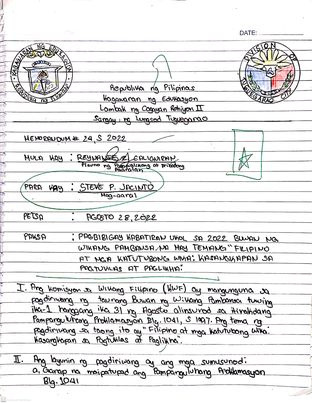 DATE:
KAGAWARAN NG EDUKASYON
REPUBLIKA NG PILIPINAS
DIVISION OF
TUGUEGARAO CITY
Republika ng Pilipinas
Kagawaran ng Edukasyon
Lambak ng Cagayan Rehiyon II
Sangay ng Lungsod Tuguegarao
MEMORANDUM # 24, S 2022
MULA KAY :
PARA KAY : STEVE P. JACINTO
Mag-aaral
PETSA : AGOSTO 28, 2022
PAKSA : PAGBIBIGAY KABATIRAN UKOL SA 2022 BUWAN NG
WIKANG PAMBANSA NA MAY TEMANG "FILIPINO
AT MGA KATUTUBONG WIKA: KASANGKAPAN SA
PAGTUKLAS AT PAGLIKHA"
I. Ang komisyon sa Wikang Filipino (KWF) ay mangunguna sa
pagdiriwang ng taunang Buwan ng Wikang Pambansa tuwing
ika-1 hanggang ika 31 ng Agosto alinsunod sa itinatadhang
Pampanguluhang Proklamasyon Blg. 1041, S 1997. Ang tema ng
pagdiriwang sa taong ito ay "Filipino at mga katutubong wika:
kasangkapan sa Pagtuklas at Paglikha"
II. Ang layunin ng pagdiriwang ay ang mga sumusunod:
a. Ganap na maipatupad ang Pampanguluhang Proklamasyon
Blg. 1041